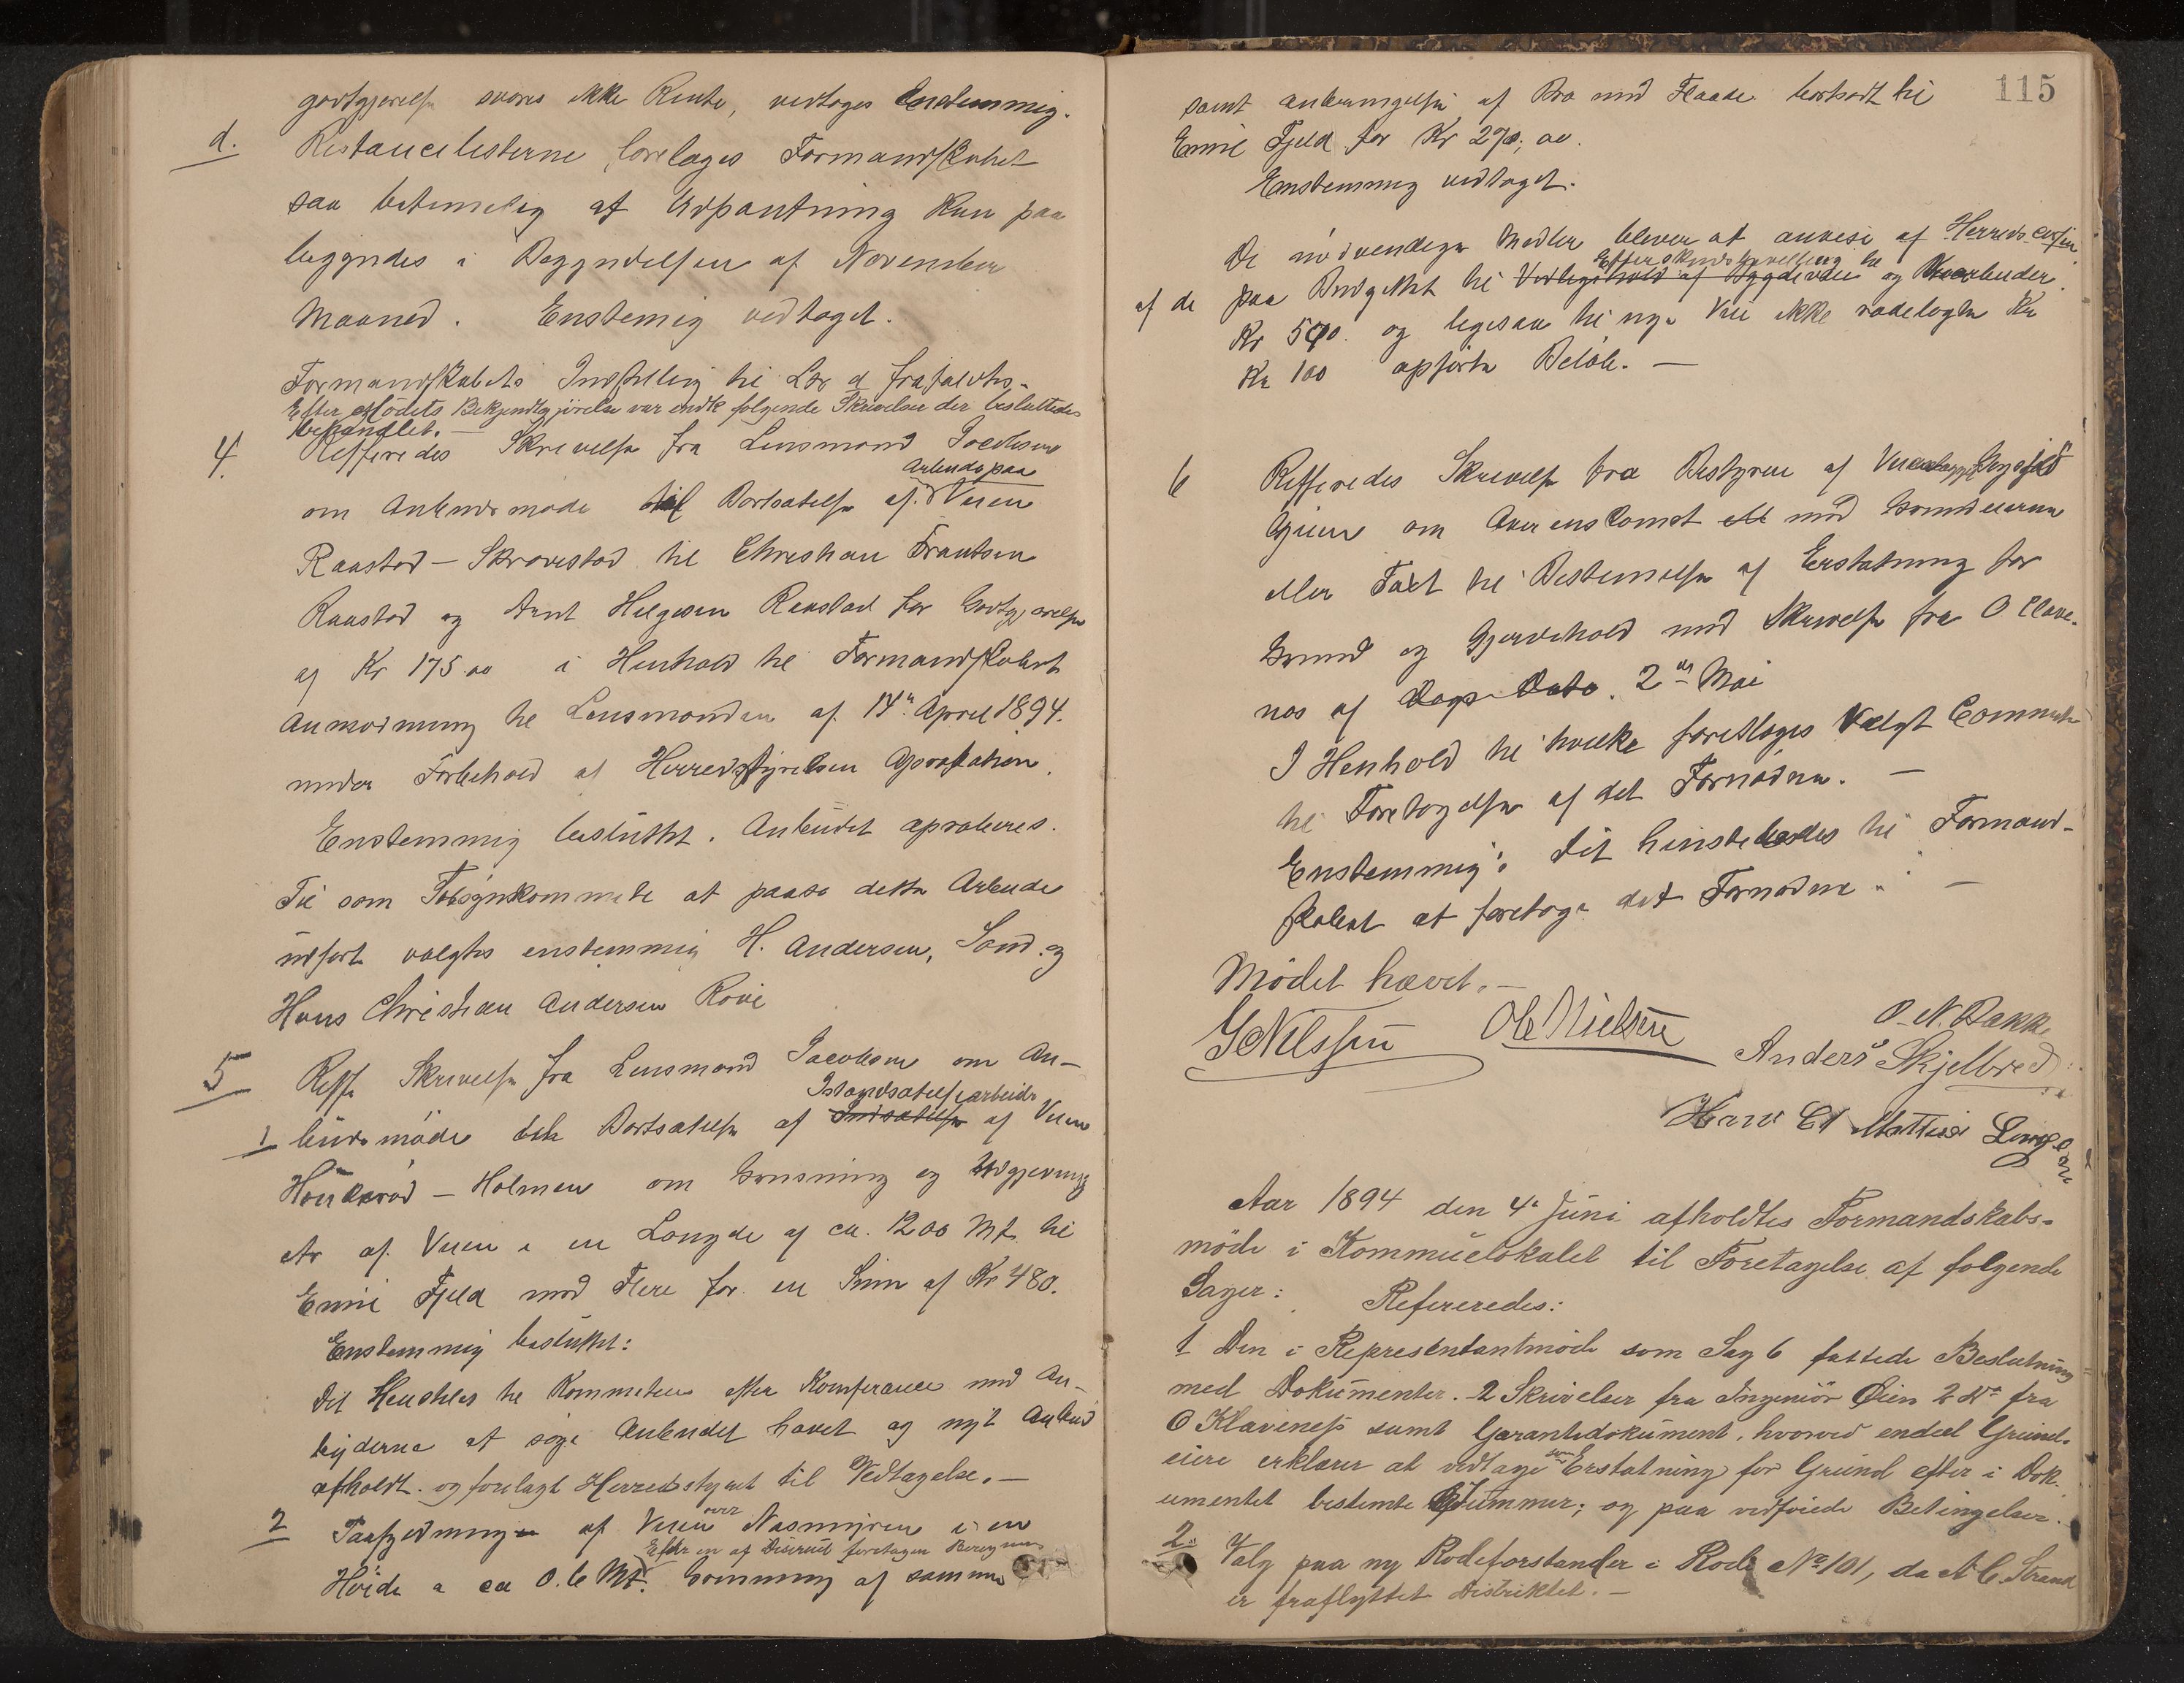 godtgjørelse svares ikke Rente, vedtoges Enstemmig.
d. Restancelisterne forelæges Formandskabet
saa betimelig at Udpantning kan paa
begyndes i Begyndelsen af November
Maaned. Enstemig vedtaget.
Formandskabets Indstilling til Litr d frafaldtes.
Efter Mödets Bekjendtgjörelse var endk følgende Skrivelser der besluttedes
behandlet.
4. Refferedes Skrivelse fra Lensmand Jacobsen
Arbeide paa
om Anbudsmøde til Bortsætelse af Veien
Raastad – Skravestad til Christian Frantsen
Raastad og Arnt Helgesen Raastad for Godtgjørelse
af Kr 175.00 i Henhold til Formandskabet
Anmodning til Lensmanden af 14de April 1894.
under Forbehold af Herredstyrelsen Aprobation.
Enstemmig besluttet. Anbudet aproberes.
Til som Tilsynskommite at paase dette Arbeide
udført valgtes enstemmig H. Andersen, Sand og
Hans Christian Andersen Rove
5 Reff. Skrivelse fra Lensmand Jacobsen om An-
Istandsætelsearbeide
1 budsmøde til Bortsætelse af Indsætelse af Veien
– Holmen om Grusning og Udgjevning
af Veien i en Længde af ca. 1200 Mt. til
Emil Fjeld med Flere for en Sum af Kr 480.
Enstemmig besluttet:
Det Henstilles til Kommiteen efter Konferance med An-
byderne at søge Anbudet hævet og nyt Anbud
afholdt og forelagt Herredsstyret til Vedtagelse. –
over
2 Paafyldning af Veien Næsmyren i en
Efter en af foretagen
Høide a ca 0.6 Mt. Grusning af samme
115
samt anbringelse af Bro med Flaade bortsat til
Emil Fjeld for Kr 270,00.
Enstemmig vedtaget.
De nödvendige Midler blever at anvise af Herreds
til
af de paa Budgettet til Vedligehold af Bygdeveie og Veiarbeider
Kr 500 og ligesaa til nye Veie ikke rodelagte Kr
Kr 100 opförte Belöb. –
6 Refferedes Skrivelse fra Bestyreren af
Øien om Overenskomst med Grundeierne
eller Taxt til Bestemelse af Erstatning for
Grund og Gjerdehold med Skrivelse fra O Clave-
nes af Dags Dato. 2den Mai
I Henhold til hvilke foretloges Valgt Commite
til Foretagelse af det Fornødne. –
Enstemmig: Det hinstilledes til Formand-
skabet at foretage det Fornødne. –
Mödet hævet. –
G Nilssen Ole Nielsen O. N. Bakke
Anders Skjelbred
Hans Et Mattisen
Aar 1894 den 4de Juni afholdtes Formandskabs-
möde i Kommunelokalet til Foretagelse af folgende
Sager: Refereredes:
1 Den i Representantmöde som Sag 6 fattede Beslutning
med Dokumenter. 2 Skrivelser fra Ingeniör Øien 2 do fra
O Klaveness samt Garantidokument, hvorved endeel Grund-
som
eiere erklærer at vedtage Erstatning for Grund efter i Dok-
umentet bestemte Summer; og paa vedföiede Betingelser.
2. Valg paa ny Rodeforstander i Rode No 101, da A C. Strand
er fraflyttet Distriktet. –